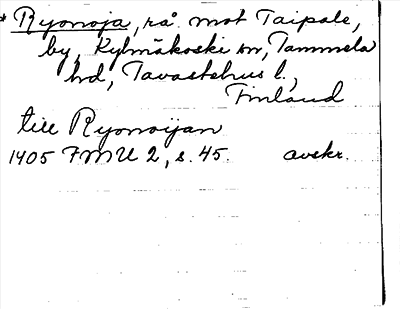 * Ryonoja, rå. mot Taipale,
by, Kylmäkoski sn, Tammela
hd, Tavastehus l.,
Finland
till Ryonoijan
1405 FMU 2, s. 45. avskr.